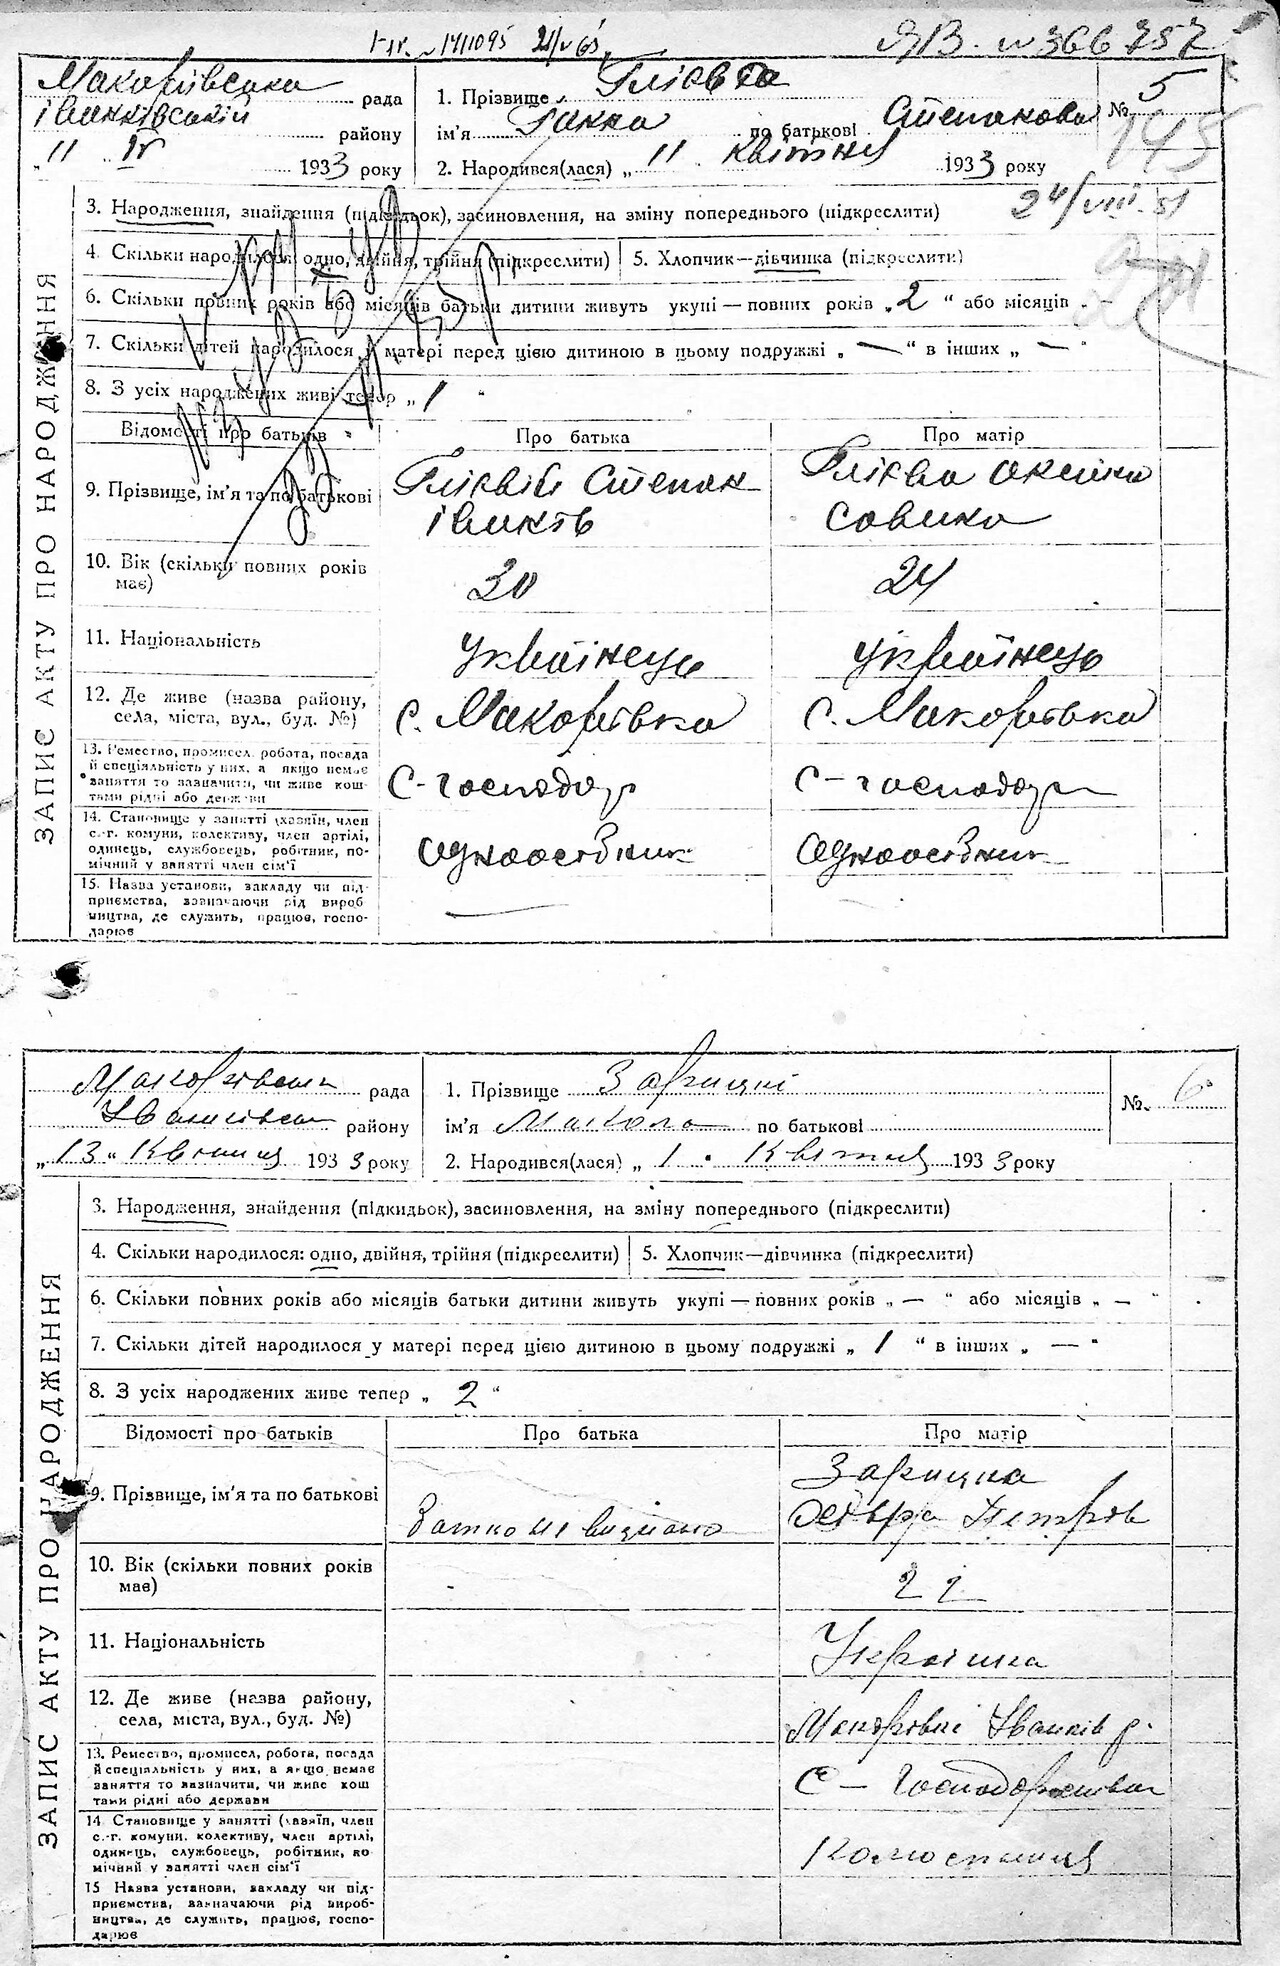 ЯІЗ. № 366257
Макарівська рада
Іванківський району
"11" IV 1933 року
1. Прізвище
ім'я Ганна по батькові Степанова
2. Народився(лася) " 11 квітня 1933 року
№ 5
24/VIII 51
ЗАПИС АКТУ ПРО НАРОДЖЕННЯ
3. Народження, знайдення (підкидьок), засиновлення, на зміну попереднього (підкреслити)
4. Скільки народилося: одно, двійня, трійня (підкреслити)
5. Хлопчик—дівчинка (підкреслити)
6. Скільки повних років або місяців батьки дитини живуть укупі — повних років „ 2 “ або місяців „ —
7. Скільки дітей народилося у матері перед цією дитиною в цьому подружжі „ — “ в інших „ — “
8. З усіх народжених живі тепер „ 1 “
Відомості про батьків
Про батька
Про матір
9. Прізвище, ім'я та по батькові
Степан
10. Вік (скільки повних років має)
30
24
11. Національність
українець
українець
12. Де живе (назва району, села, міста, вул., буд. №)
с. Макарівка
с. Макарівка
13. Ремество, промисел, робота, посада й спеціяльність у них, а якщо немає заняття то зазначити, чи живе коштами рідні або держави
С-господар
С-господар
14. Становище у занятті (хазяїн, член с.-г. комуни, колективу, член артілі, одинець, службовець, робітник, помічний у занятті член сім'ї
Одноосібник
Одноосібник
15. Назва установи, закладу чи підприємства, зазначаючи рід виробництва, де служить, працює, господарює
—
Макарівська рада
Іванківська району
„ 13 “ Квітня 1933 року
1. Прізвище Зарицкі
ім'я Микола по батькові
2. Народився(лася) „ 1 “ Квітня 1933 року
№ 6
ЗАПИС АКТУ ПРО НАРОДЖЕННЯ
3. Народження, знайдення (підкидьок), засиновлення, на зміну попереднього (підкреслити)
4. Скільки народилося: одно, двійня, трійня (підкреслити)
5. Хлопчик—дівчинка (підкреслити)
6. Скільки повних років або місяців батьки дитини живуть укупі — повних років „ — “ або місяців „ — “
7. Скільки дітей народилося у матері перед цією дитиною в цьому подружжі „ 1 “ в інших „ — “
8. З усіх народжених живе тепер „ 2 “
Відомості про батьків
Про батька
Про матір
9. Прізвище, ім'я та по батькові
Зарицка
Петрів
10. Вік (скільки повних років має)
22
11. Національність
Українка
12. Де живе (назва району, села, міста, вул., буд. №)
Іванків р.
13. Ремество, промисел, робота, посада й спеціяльність у них, а якщо немає заняття то зазначити, чи живе коштами рідні або держави
С –
14. Становище у занятті (хазяїн, член с.-г. комуни, колективу, член артілі, одинець, службовець, робітник, помічний у занятті член сім'ї
15 Назва установи, закладу чи підприємства, зазначаючи рід виробництва, де служить, працює, господарює